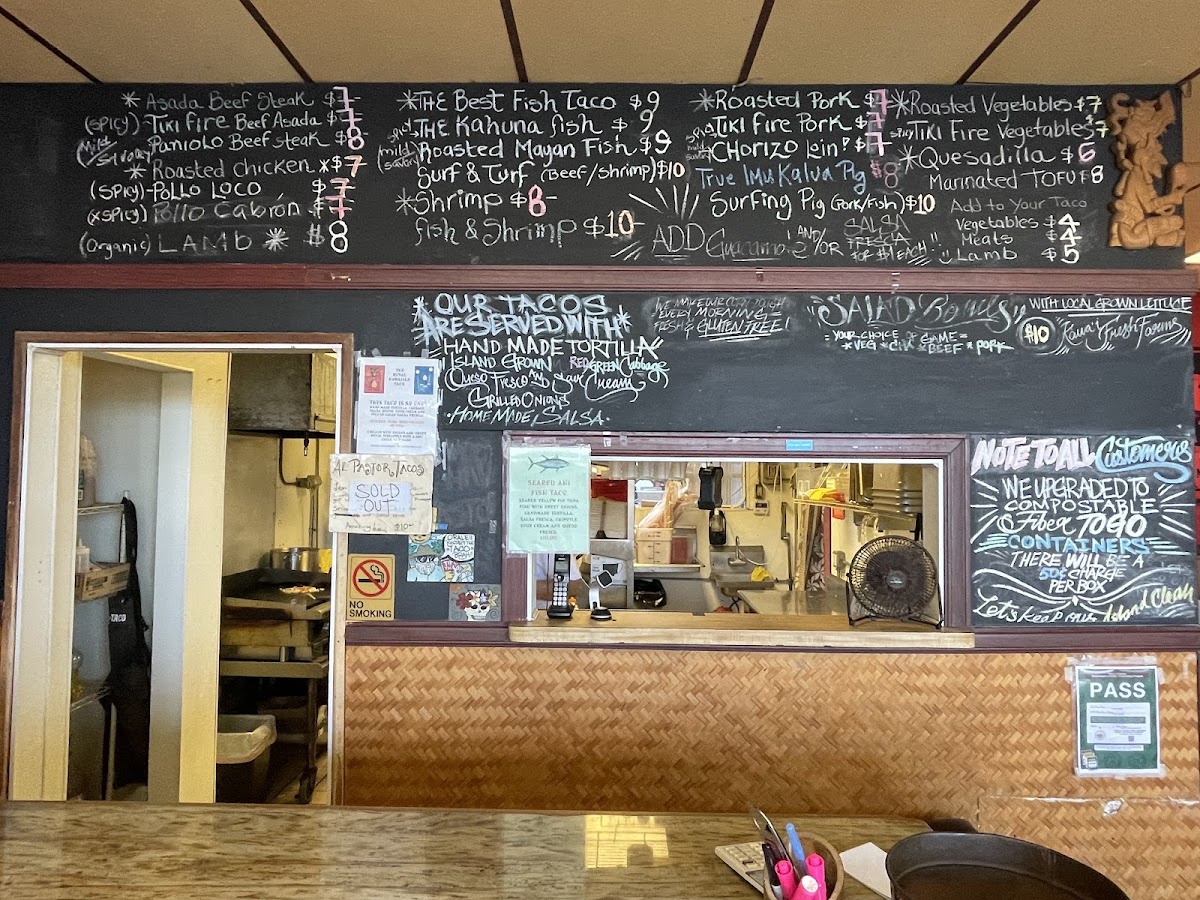 * Asada Beef Steak $7-
(SPICY) - TiKi FiRE Beef Asada $7-
Mild / Savory PANIOLO Beef steak $8
* Roasted chicken * $7
(SPICY) - POLLO LOCO $7
(XSPICY) Pollo Cabrón $7-
(Organic) LAMb * $8
* THE Best Fish Taco $9
spicy THE Kahuna fish $9
mild savory Roasted Mayan Fish $9
Surf & Turf (Beef/Shrimp) $10
* Shrimp $8-
fish & Shrimp $10
* Roasted Pork $7
spicy TIKI Fire Pork $7
mild savory CHORIZO Loin $7-
True IMU KALUA Pig $8
Surfing Pig (Pork/Fish) $10
ADD Guacamole AND/OR SALSA FRESCA FOR $1 EACH
* Roasted Vegetables $7
SPICY TIKI Fire Vegetables $7
* Quesadilla $6
Marinated TOFU 8
Add to Your Taco
Vegetables $4
Meats $4
Lamb $5
* OUR TACOS
ARE SERVED WITH *
HAND MADE TORTILLA
ISLAND GROWN RED GREEN Cabbage
Queso Fresco AND Sour Cream
GRILLED ONIONS
• HOME MADE, SALSA •
WE MAKE OUR CORN DOUGH
EVERY MORNING =
FRESH & GLUTEN FREE!
"SALAD Bowls"
WITH LOCAL GROWN LETTUCE
$10 Fresh Farms
= YOUR CHOICE OF GAME =
* VEG * CHX * BEEF * PORK
THIS TACO IS NO
AL PASTOR TACOS
SOLD
OUT
$10-
SEARED AHI
FISH TACO
SEARED YELLOW FIN TUNA
WITH SWEET ONIONS,
HANDMADE TORTILLA,
SALSA FRESCA, CHIPOTLE
SOUR CREAM AND QUESO
FRESCO
NO
SMOKING
TACO
NOTE TO ALL Customers
WE UPGRADED TO
COMPOSTABLE
Fiber TOGO
CONTAINERS
THERE WILL BE A
50¢ CHARGE
PER BOX
Let's keep Island Clean
PASS
TACO